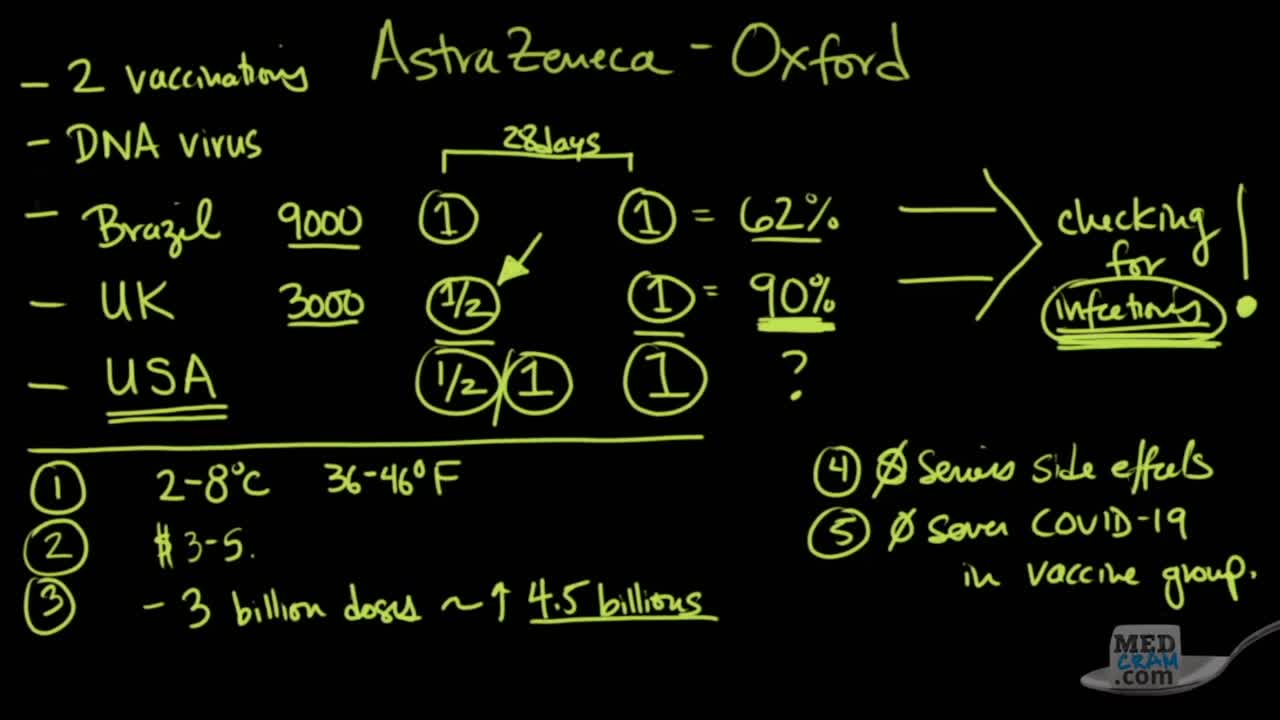 AstraZeneca - Oxford
- 2 vaccinations
- DNA virus
28days
- Brazil 9000 1 1 = 62%
- UK 3000 1/2 1 = 90%
- USA 1/2 / 1 1 ?
checking
for
infections !
1 2-8°C 36-46°F
2 $3-5.
3 - 3 billion doses ~ ↑ 4.5 billions
4 Ø Serious side effects
5 Ø Sever COVID-19
in vaccine group.
MED
CRAM
.com